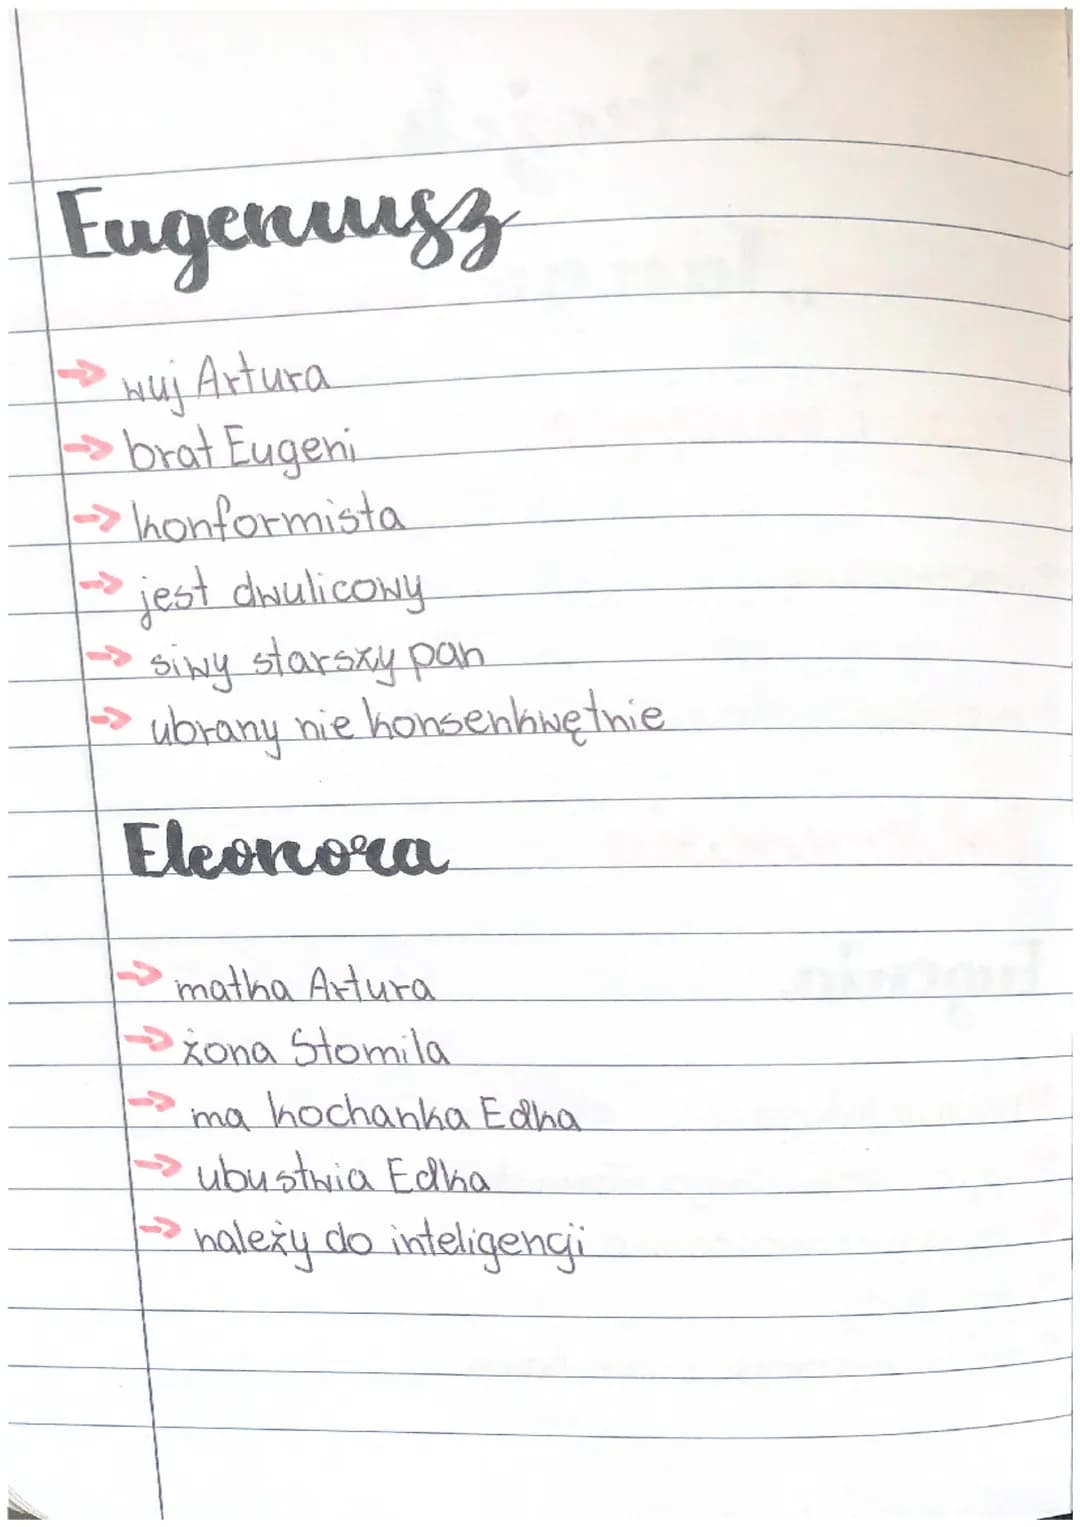 Eugeniusz
→ wuj Artura
→ brat Eugeni
→ konformista
→ jest dwulicowy
→ siwy starszy pan
→ ubrany nie konsenkwętnie
Eleonora
→ matka Artura
→ żona Stomila
→ ma kochanka Edka
→ ubustwia Edka
→ należy do inteligencji